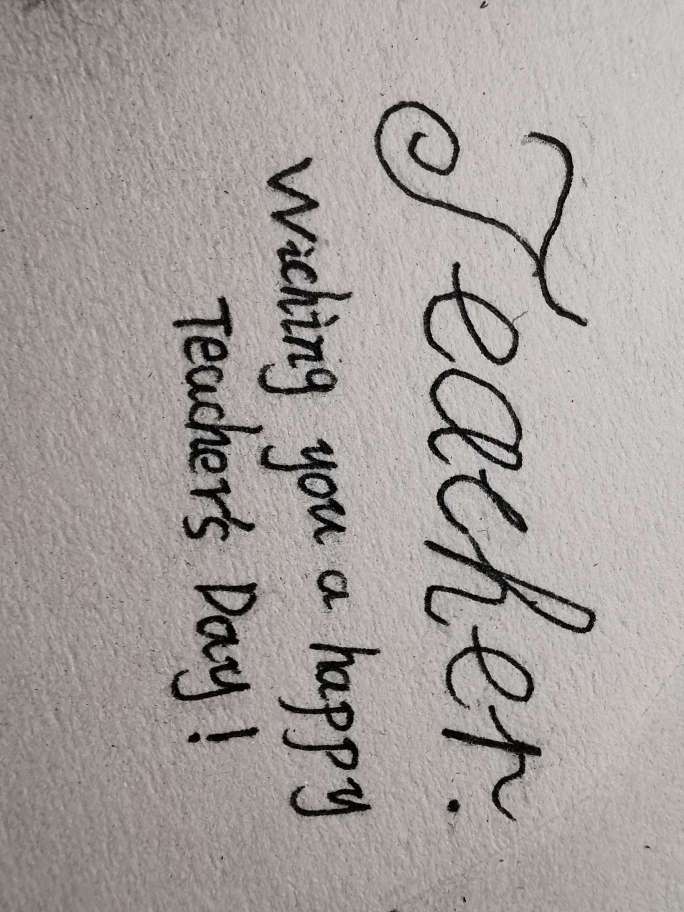 Teacher.
Wiching you a happy
Teacher's Day!